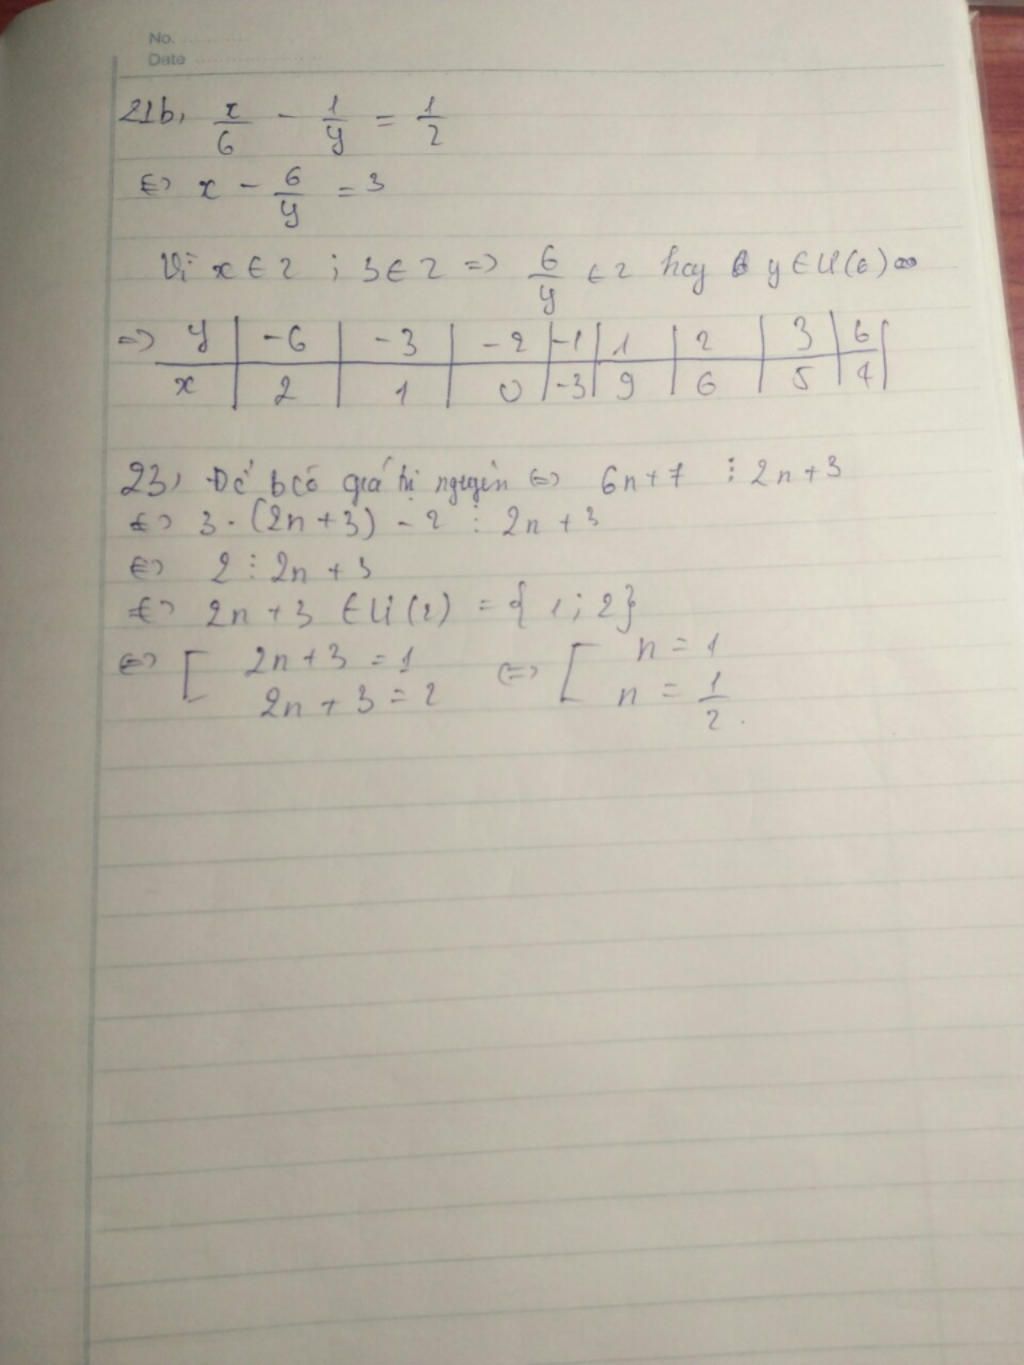 No.
Date
21b, x/6 - 1/y = 1/2
⇔ x - 6/y = 3
Vì x ∈ Z ; 3 ∈ Z ⇒ 6/y ∈ Z hay y ∈ Ư(6)
⇒ y | -6 | -3 | -2 | -1 | 1 | 2 | 3 | 6
x | 2 | 1 | 0 | -3 | 9 | 6 | 5 | 4
23, Để b có giá trị nguyên ⇔ 6n+7 ⋮ 2n+3
⇔ 3.(2n+3) - 2 ⋮ 2n+3
⇔ 2 ⋮ 2n+3
⇔ 2n+3 ∈ Ư(2) = {1;2}
⇔ [ 2n+3 = 1 ⇔ [ n = 1
2n+3 = 2 n = 1/2.